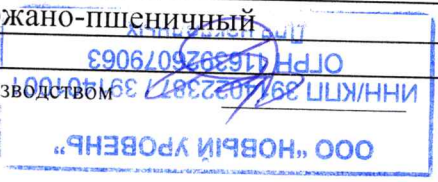 жано-пшеничный
зводством
ООО "НОВЫЙ УРОВЕНЬ"
ИНН/КПП 3914022387 / 391401001
ОГРН 1163926079063
Для накладных